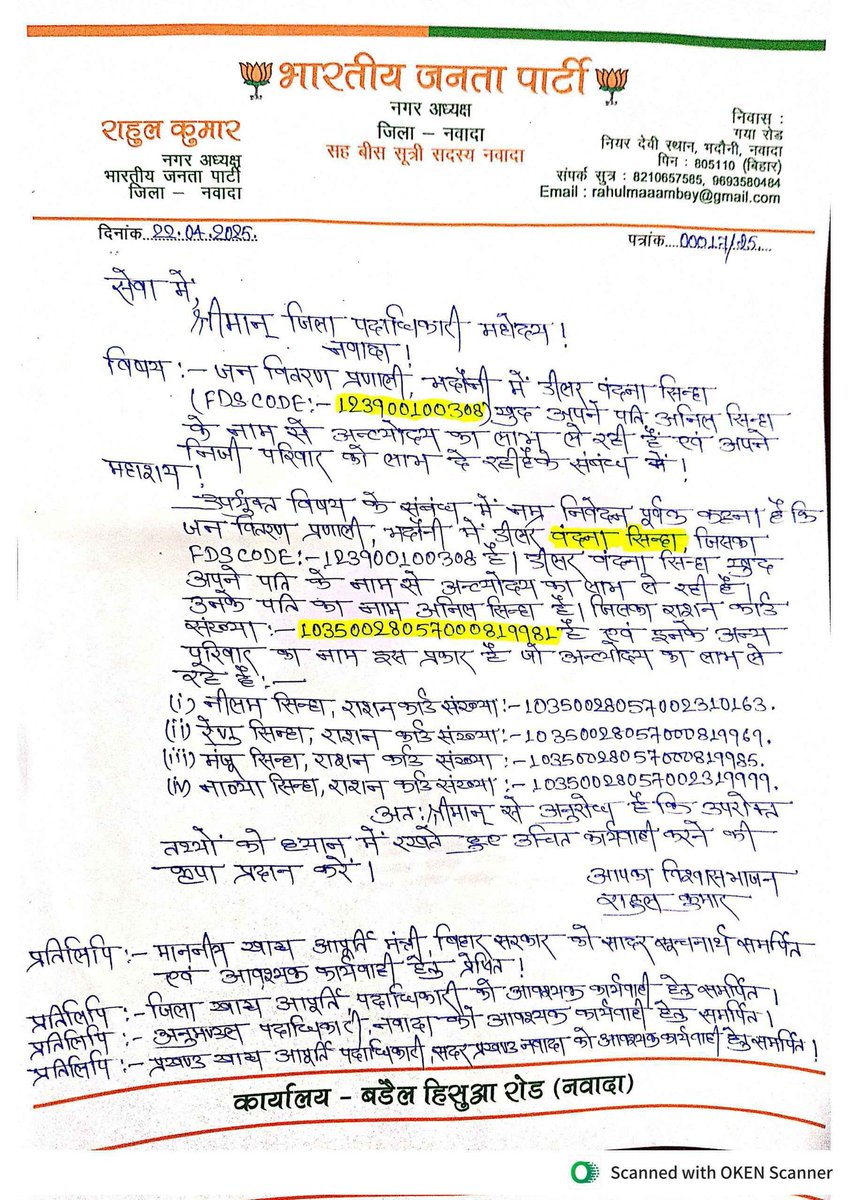 भारतीय जनता पार्टी
नगर अध्यक्ष
जिला – नवादा
सह बीस सूत्री सदस्य नवादा
राहुल कुमार
नगर अध्यक्ष
भारतीय जनता पाटी
जिला – नवादा
निवास :
गया रोड
नियर देवी स्थान, भदौनी, नवादा
पिन : 805110 (बिहार)
संपर्क सुत्र : 8210657585, 9693580484
Email : rahulmaaambey@gmail.com
दिनांक...22.04.2025.
पत्रांक....00017/25....
सेवा में,
श्रीमान् जिला पदाधिकारी महोदय!
नवादा!
विषय :- जन वितरण प्रणाली, भदौनी में डीलर वंदना सिन्हा
(FDS CODE:- 123900100308) खुद अपने पति अनिल सिन्हा
के नाम से अन्त्योदय का लाभ ले रही है एवं अपने
निजी परिवार को लाभ दे रही है के संबंध में!
महाशय!
उपर्युक्त विषय के संबंध में नम्र निवेदन पूर्वक कहना है कि
जन वितरण प्रणाली, भदौनी में डीलर वंदना सिन्हा, जिसका
FDS CODE:-123900100308 है। डीलर वंदना सिन्हा खुद
अपने पति के नाम से अन्त्योदय का लाभ ले रही है।
उनके पति का नाम अनिल सिन्हा है। जिसका राशन कार्ड
संख्या:- 10350028057000819981 है एवं इनके अन्य
परिवार का नाम इस प्रकार है जो अन्त्योदय का लाभ ले
रहे है:-
(i) नीलम सिन्हा, राशन कार्ड संख्या:-10350028057002310163.
(ii) रेणु सिन्हा, राशन कार्ड संख्या:-10350028057000819969.
(iii) मंजू सिन्हा, राशन कार्ड संख्या:-10350028057000819985.
(iv) नाव्या सिन्हा, राशन कार्ड संख्या:-10350028057002319999.
अत: श्रीमान् से अनुरोध है कि उपरोक्त
तथ्यों को ध्यान में रखते हुए उचित कार्यवाही करने की
कृपा प्रदान करें।
आपका विश्वासभाजन
राहुल कुमार
प्रतिलिपि:- माननीय खाद्य आपूर्ति मंत्री, बिहार सरकार को सादर सूचनार्थ समर्पित
एवं आवश्यक कार्यवाही हेतु प्रेषित!
प्रतिलिपि:- जिला खाद्य आपूर्ति, पदाधिकारी को आवश्यक कार्यवाही हेतु समर्पित।
प्रतिलिपि:- अनुमण्डल पदाधिकारी, नवादा को आवश्यक कार्यवाही हेतु समर्पित।
प्रतिलिपि:- प्रखण्ड खाद्य आपूर्ति पदाधिकारी, सदर प्रखण्ड नवादा को आवश्यक कार्यवाही हेतु समर्पित!
कार्यालय – बडैल हिसुआ रोड (नवादा)
Scanned with OKEN Scanner